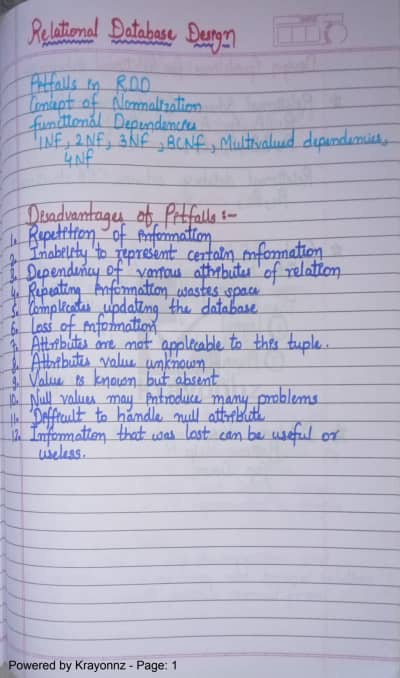 Relational Database Design
Pitfalls in RDD
Concept of Normalization
functional Dependencies
1NF, 2NF, 3NF, BCNF, Multivalued dependencies,
4NF
Disadvantages of Pitfalls :-
1. Repetition of information
2. Inability to represent certain information
3. Dependency of various attributes of relation
4. Repeating information wastes space
5. Complicates updating the database
6. Loss of information
7. Attributes are not applicable to this tuple.
8. Attributes value unknown
9. Value is known but absent
10. Null values may introduce many problems
11. Difficult to handle null attribute
12. Information that was lost can be useful or
useless.
Powered by Krayonnz - Page: 1